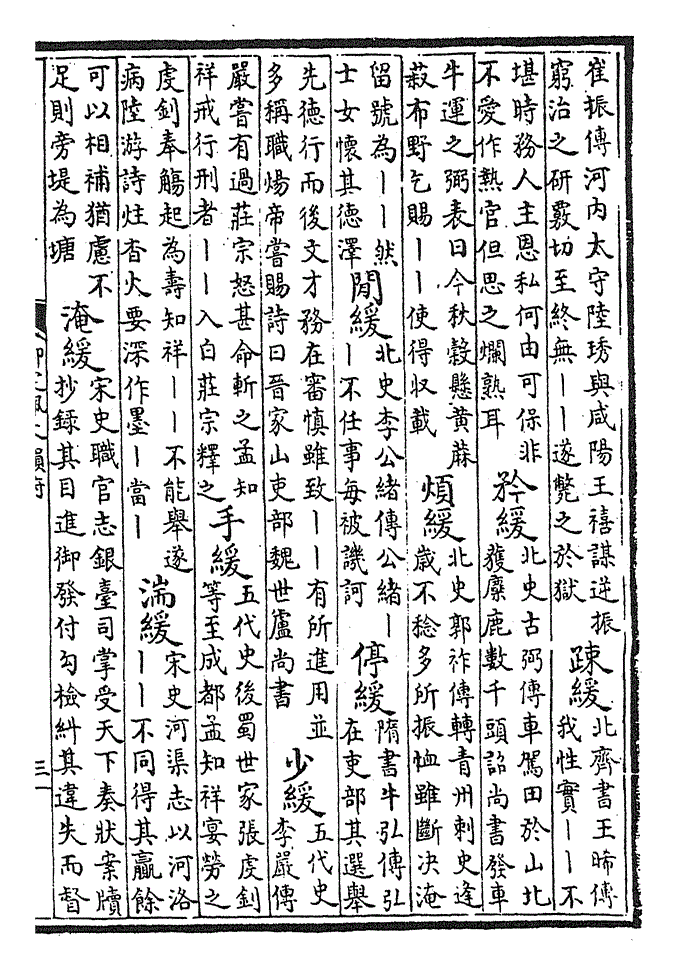 崔振傳河内太守陸琇與咸陽王禧謀逆振
窮治之研覈切至終無丨丨遂斃之於獄
疎緩
北齊書王晞傳
我性實丨丨不
堪時務人主恩私何由可保非
不愛作熱官但思之爛熟耳
矜緩
北史古弼傳車駕田於山北
獲麋鹿數千頭詔尚書發車
牛運之弼表曰今秋穀懸黄蔴
菽布野乞賜丨丨使得收載
煩緩
北史郭祚傳轉青州刺史逢
歲不稔多所振恤雖斷決淹
留號為丨丨然
士女懷其德澤
閒緩
北史李公緒傳公緒丨
丨不任事每被譏訶
停緩
隋書牛弘傳弘
在吏部其選舉
先德行而後文才務在審慎雖致丨丨有所進用並
多稱職煬帝嘗賜詩曰晉家山吏部魏世盧尚書
少緩
五代史
李嚴傳
嚴嘗有過莊宗怒甚命斬之孟知
祥戒行刑者丨丨入白莊宗釋之
手緩
五代史後蜀世家張虔釗
等至成都孟知祥宴勞之
虔釗奉觴起為壽知祥丨丨不能舉遂
病陸游詩炷香火要深作墨丨當丨
湍緩
宋史河渠志以河洛
丨丨不同得其贏餘
可以相補猶慮不
足則旁堤為塘
淹緩
宋史職官志銀臺司掌受天下奏狀案牘
抄録其目進御發付勾檢糾其違失而督